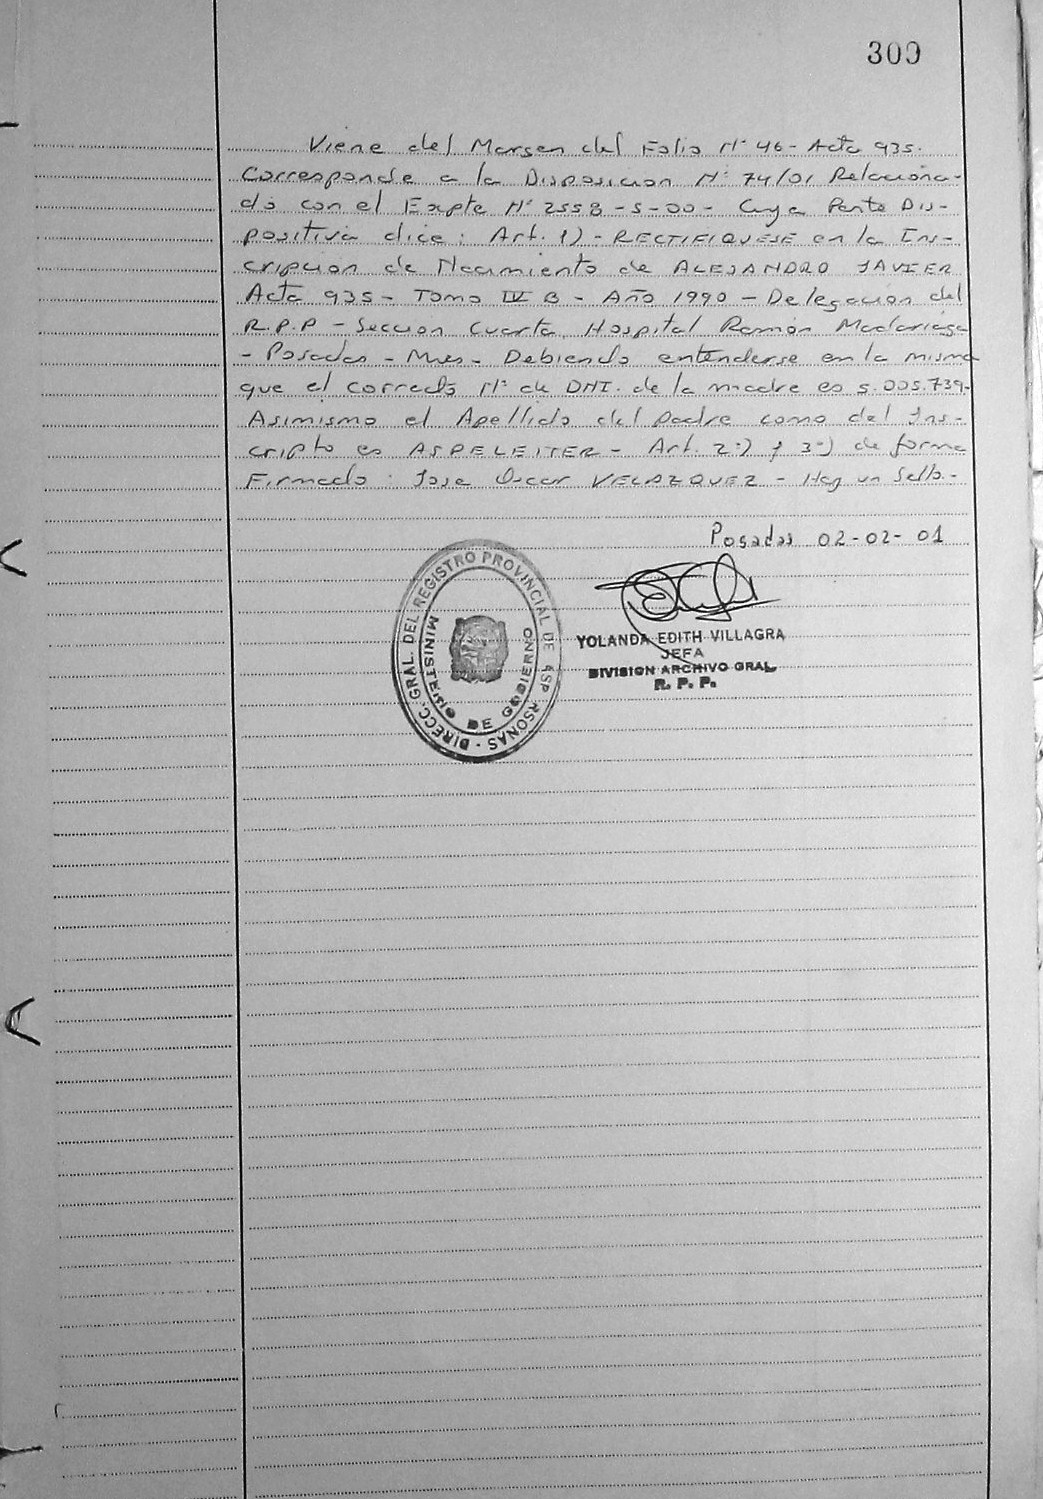 309
Viene del Margen del Folio Nº 46 - Acta 935.
Corresponde a la Disposicion Nº 74/01 Relaciona-
do con el Expte Nº 2558-S-00 - Cuya Parte Dis-
positiva dice: Art. 1) - RECTIFIQUESE en la Ins-
cripcion de Nacimiento de ALEJANDRO JAVIER
Acta 935 - Tomo IV B - Año 1990 - Delegacion del
R.P.P - Seccion Cuarta, Hospital Ramón Madariaga
- Posadas - Mnes - Debiendo entenderse en la misma
que el correcto Nº de DNI. de la madre es 5.005.739-
Asimismo el Apellido del padre como del Ins-
cripto es ASPELEITER - Art. 2º) y 3º) de forma
Firmado: Jose Oscar VELAZQUEZ - Hay un Sello.-
Posadas 02-02-01
DIRECC. GRAL. DEL REGISTRO PROVINCIAL DE
MINISTERIO DE GOBIERNO
YOLANDA EDITH VILLAGRA
JEFA
DIVISION ARCHIVO GRAL
R. P. P.